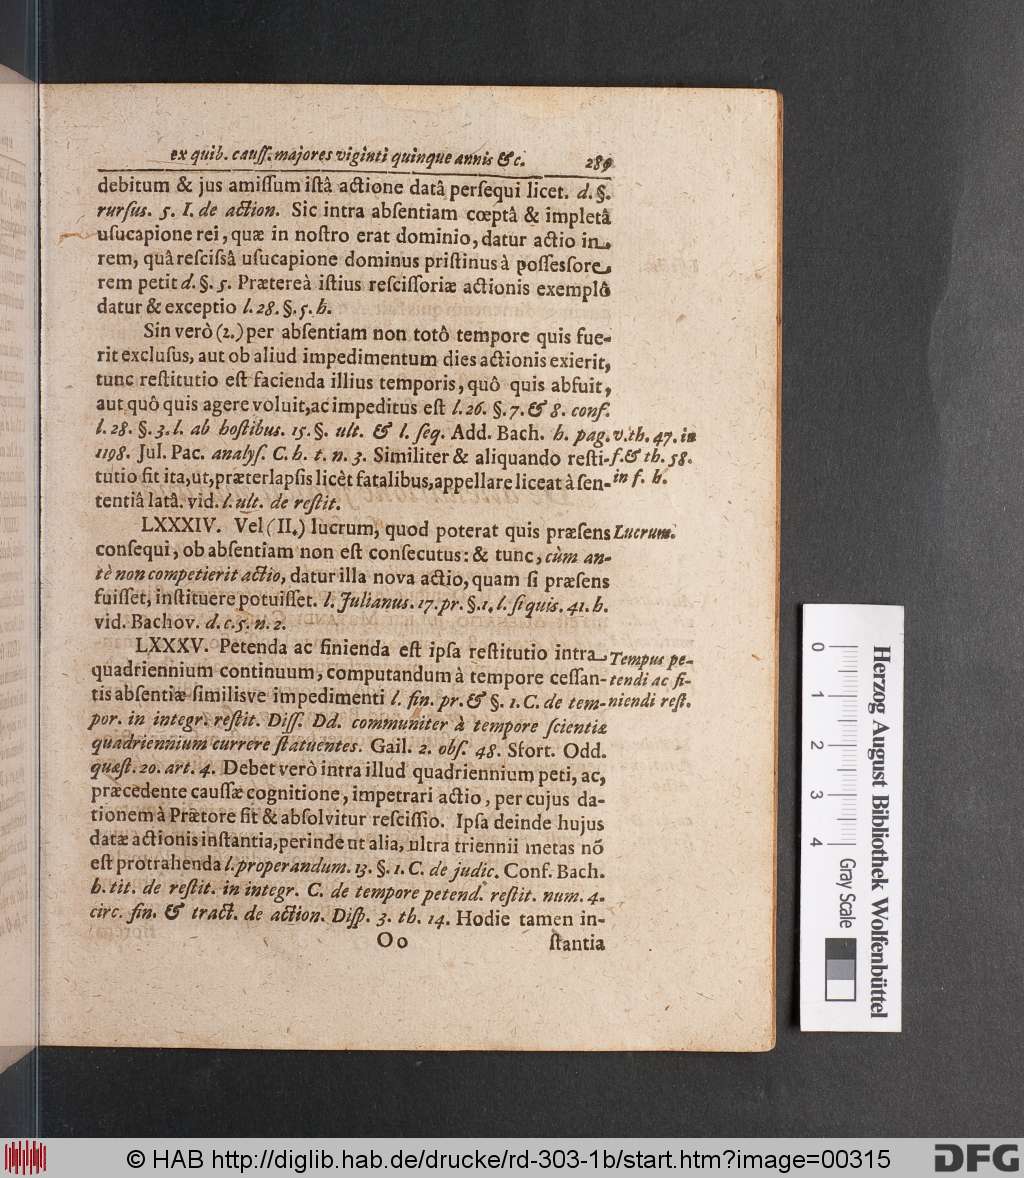 ex quib. cauſſ. majores viginti quinque annis &c. 289
debitum & jus amiſſum iſtâ actione datâ perſequi licet. d. §.
rurſus. 5. I. de action. Sic intra abſentiam cœptâ & impletâ
uſucapione rei, quæ in noſtro erat dominio, datur actio in
rem, quâ reſciſsâ uſucapione dominus priſtinus à poſſeſſore
rem petit d. §. 5. Prætereà iſtius reſciſſoriæ actionis exemplô
datur & exceptio l. 28. §. 5. h.
Sin verò (2.) per abſentiam non totô tempore quis fue-
rit excluſus, aut ob aliud impedimentum dies actionis exierit,
tunc reſtitutio eſt facienda illius temporis, quô quis abfuit,
aut quô quis agere voluit, ac impeditus eſt l. 26. §. 7. & 8. conf.
l. 28. §. 3. l. ab hoſtibus. 15. §. ult. & l. ſeq. Add. Bach. h. pag. v. th. 47. in
1198. Jul. Pac. analyſ. C. h. t. n. 3. Similiter & aliquando reſti- f. & th. 58.
tutio fit ita, ut, præterlapſis licèt fatalibus, appellare liceat à ſen- in f. h.
tentiâ latâ. vid. l. ult. de reſtit.
LXXXIV. Vel (II.) lucrum, quod poterat quis præſens Lucrum.
conſequi, ob abſentiam non eſt conſecutus: & tunc, cùm an-
tè non competierit actio, datur illa nova actio, quam ſi præſens
fuiſſet, inſtituere potuiſſet. l. Julianus. 17. pr. §. 1. l. ſi quis. 41. h.
vid. Bachov. d. c. 5. n. 2.
LXXXV. Petenda ac finienda eſt ipſa reſtitutio intra Tempus pe-
quadriennium continuum, computandum à tempore ceſſan- tendi ac fi-
tis abſentiæ ſimilisve impedimenti l. fin. pr. & §. 1. C. de tem- niendi reſt.
por. in integr. reſtit. Diſſ. Dd. communiter à tempore ſcientiæ
quadriennium currere ſtatuentes. Gail. 2. obſ. 48. Sfort. Odd.
quæſt. 20. art. 4. Debet verò intra illud quadriennium peti, ac,
præcedente cauſſæ cognitione, impetrari actio, per cujus da-
tionem à Prætore fit & abſolvitur reſciſſio. Ipſa deinde hujus
datæ actionis inſtantia, perinde ut alia, ultra triennii metas nō
eſt protrahenda l. properandum. 13. §. 1. C. de judic. Conf. Bach.
h. tit. de reſtit. in integr. C. de tempore petend. reſtit. num. 4.
circ. fin. & tract. de action. Diſp. 3. th. 14. Hodie tamen in-
Oo ſtantia
0 1 2 3 4 Gray Scale
Herzog August Bibliothek Wolfenbüttel
© HAB http://diglib.hab.de/drucke/rd-303-1b/start.htm?image=00315
DFG